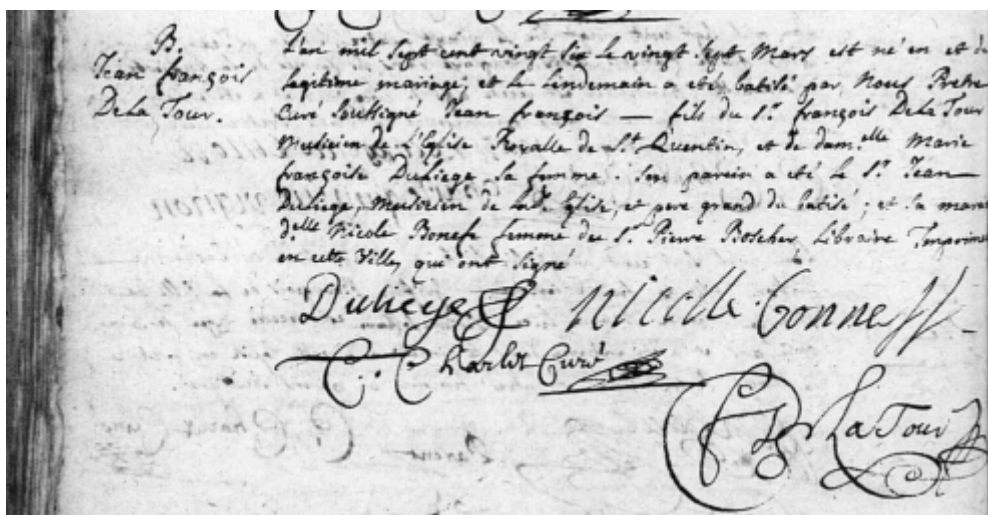 B.
Jean françois
De La Tour.
L'an mil sept cent vingt six le vingt sept Mars est né en et de
legitime mariage, et le lendemain a eté batisé par Nous Pretre
Curé soussigné Jean françois — fils du Sr. françois De La Tour
Musicien de L'Eglise Royalle de St. Quentin, et de dam.elle Marie
françoise Duliege sa femme. Son parein a eté le Sr. Jean
Duliege, Musicien de lad. Eglise, et pere grand du batisé; et sa mare
d.elle Nicole Bonefe femme du Sr. Pierre Boscher Libraire Imprim
en cette Ville, qui ont signé
Duliege nicolle bonneff
C. Charlot Curé
F D La Tour